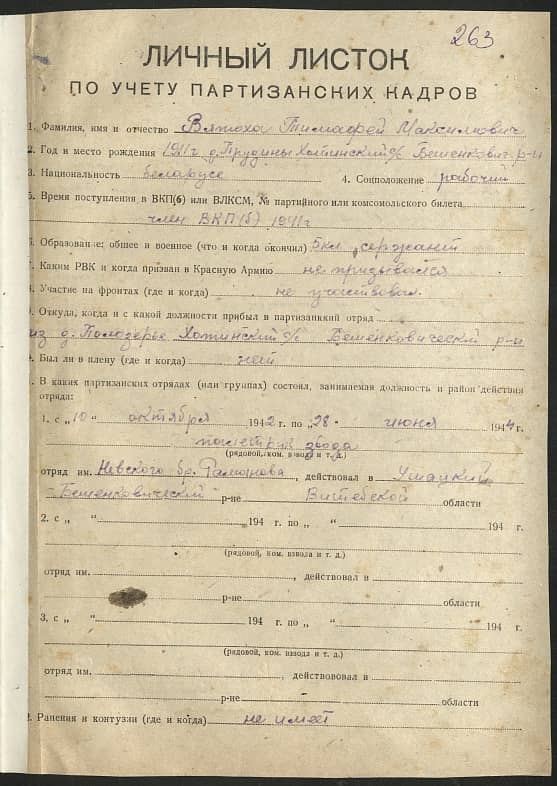 263
ЛИЧНЫЙ ЛИСТОК
ПО УЧЕТУ ПАРТИЗАНСКИХ КАДРОВ
1. Фамилия, имя и отчество Вятоха Тимафей Максимович
2. Год и место рождения 1911 г д. Прудины Хотинский с/с Бешенкович. р-н
3. Национальность беларусс 4. Соцположение рабочий
5. Время поступления в ВКП(б) или ВЛКСМ, № партийного или комсомольского билета
член ВКП(б) 1941 г
6. Образование; общее и военное (что и когда окончил) 5 кл сержант
7. Каким РВК и когда призван в Красную Армию не призывался
8. Участие на фронтах (где и когда) не участвовал
. Откуда, когда и с какой должности прибыл в партизанский отряд
из д. Полозерье Хотинский с/с Бешенковический р-н
. Был ли в плену (где и когда) нет
. В каких партизанских отрядах (или группах) состоял, занимаемая должность и район действия
отряда:
1. с „10" октября 1942 г. по „28" июня 1944 г.
взвода
(рядовой, ком. взвода и т. д.)
отряд им. Невского бр. Рамонова, действовал в
Бешенковический р-не Витебской области
2. с „ " 194 г. по „ " 194 г.
(рядовой, ком. взвода и т. д.)
отряд им. , действовал в
р-не области
3. с „ " 194 г. по „ " 194 г.
(рядовой, ком. взвода и т. д.)
отряд им. , действововал в
р-не области
. Ранения и контузии (где и когда) не имеет